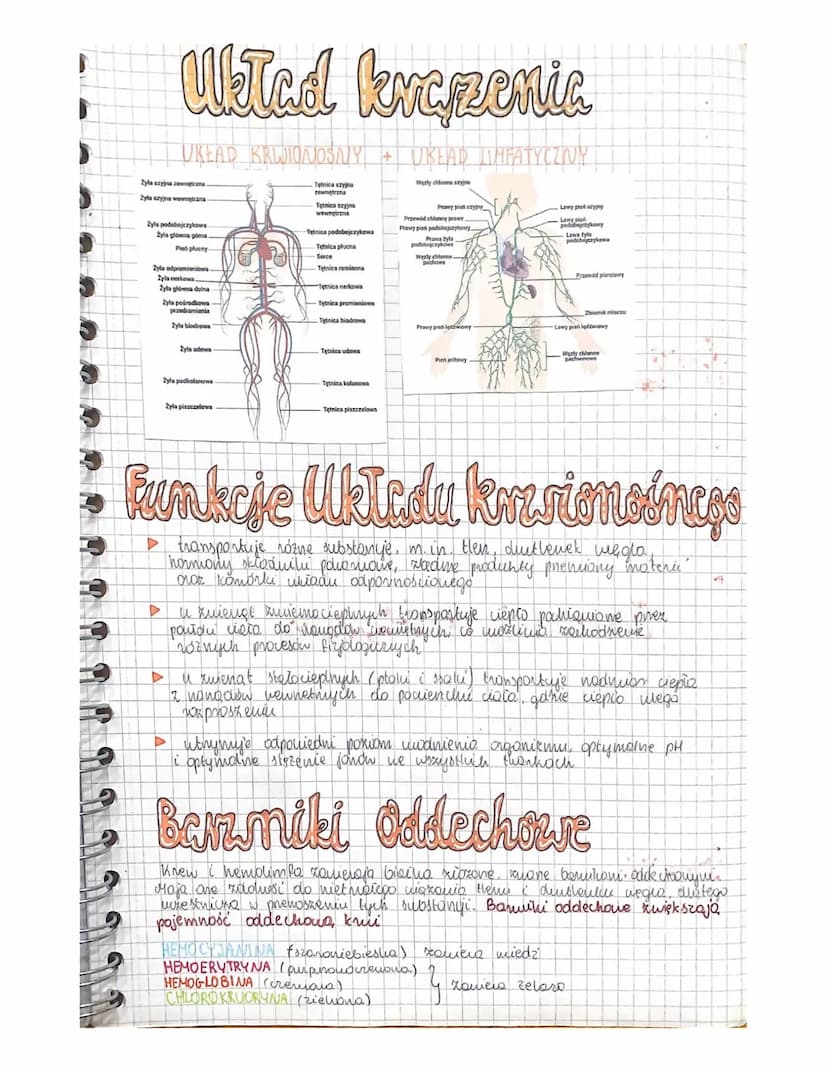 Układ krążenia
UKŁAD KRWIONOŚNY + UKŁAD LIMFATYCZNY
Żyła szyjna zewnętrzna
Żyła szyjna wewnętrzna
Żyła podobojczykowa
Żyła główna górna
Pień płucny
Żyła odpromieniowa
Żyła nerkowa
Żyła główna dolna
Żyła pośrodkowa
przedramienia
Żyła biodrowa
Żyła udowa
Żyła podkolanowa
Żyła piszczelowa
Tętnica szyjna
zewnętrzna
Tętnica szyjna
wewnętrzna
Tętnica podobojczykowa
Tętnica płucna
Serce
Tętnica ramienna
Tętnica nerkowa
Tętnica promieniowa
Tętnica biodrowa
Tętnica udowa
Tętnica kolanowa
Tętnica piszczelowa
Węzły chłonne szyjne
Prawy pień szyjny
Przewód chłonny prawy
Prawy pień podobojczykowy
Prawa żyła
podobojczykowa
Węzły chłonne
pachowe
Prawy pień lędźwiowy
Pień jelitowy
Lewy pień szyjny
Lewy pień
podobojczykowy
Lewa żyła
podobojczykowa
Przewód piersiowy
Zbiornik mleczu
Lewy pień lędźwiowy
Węzły chłonne
pachwinowe
Funkcje Układu krwionośnego
transportuje różne substancje, m.in. tlen, dwutlenek węgla,
hormony składniki pokarmowe, zbędne produkty przemiany materii
oraz komórki układu odpornościowego
u zwierząt zmiennocieplnych transportuje ciepło pochłaniane przez
powłoki ciała do narządów wewnętrznych, co umożliwia zachodzenie
różnych procesów fizjologicznych
u zwierząt stałocieplnych (ptaki i ssaki) transportuje nadmiar ciepła
z narządów wewnętrznych do powierzchni ciała, gdzie ciepło ulega
rozproszeniu
utrzymuje odpowiedni poziom uwodnienia organizmu, optymalne pH
i optymalne stężenie jonów we wszystkich tkankach
Barwniki Oddechowe
Krew i hemolimfa zawierają białka złożone, zwane barwnikami oddechowymi.
Mają one zdolność do nietrwałego wiązania tlenu i dwutlenku węgla, dlatego
uczestniczą w przenoszeniu tych substancji. Barwniki oddechowe zwiększają
pojemność oddechową krwi
HEMOCYJANINA (szaroniebieska) zawiera miedź
HEMOERYTRYNA (purpurowoczerwona)
HEMOGLOBINA (czerwona) zawiera żelazo
CHLOROKRUORYNA (zielona)